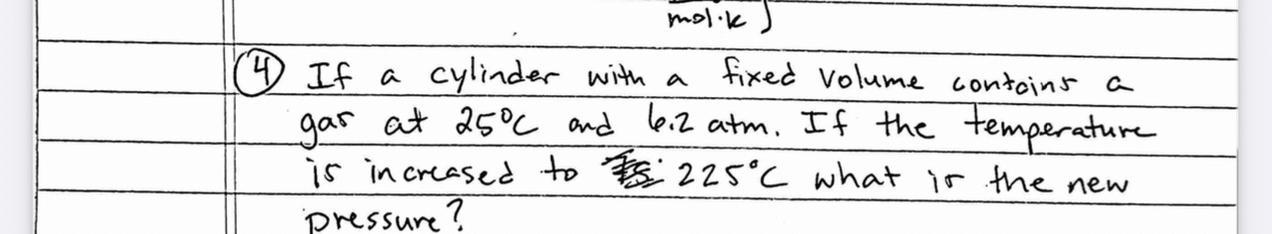 mol·k
④ If a cylinder with a fixed volume contains a
gas at 25°C and 6.2 atm. If the temperature
is increased to 225°C what is the new
pressure?